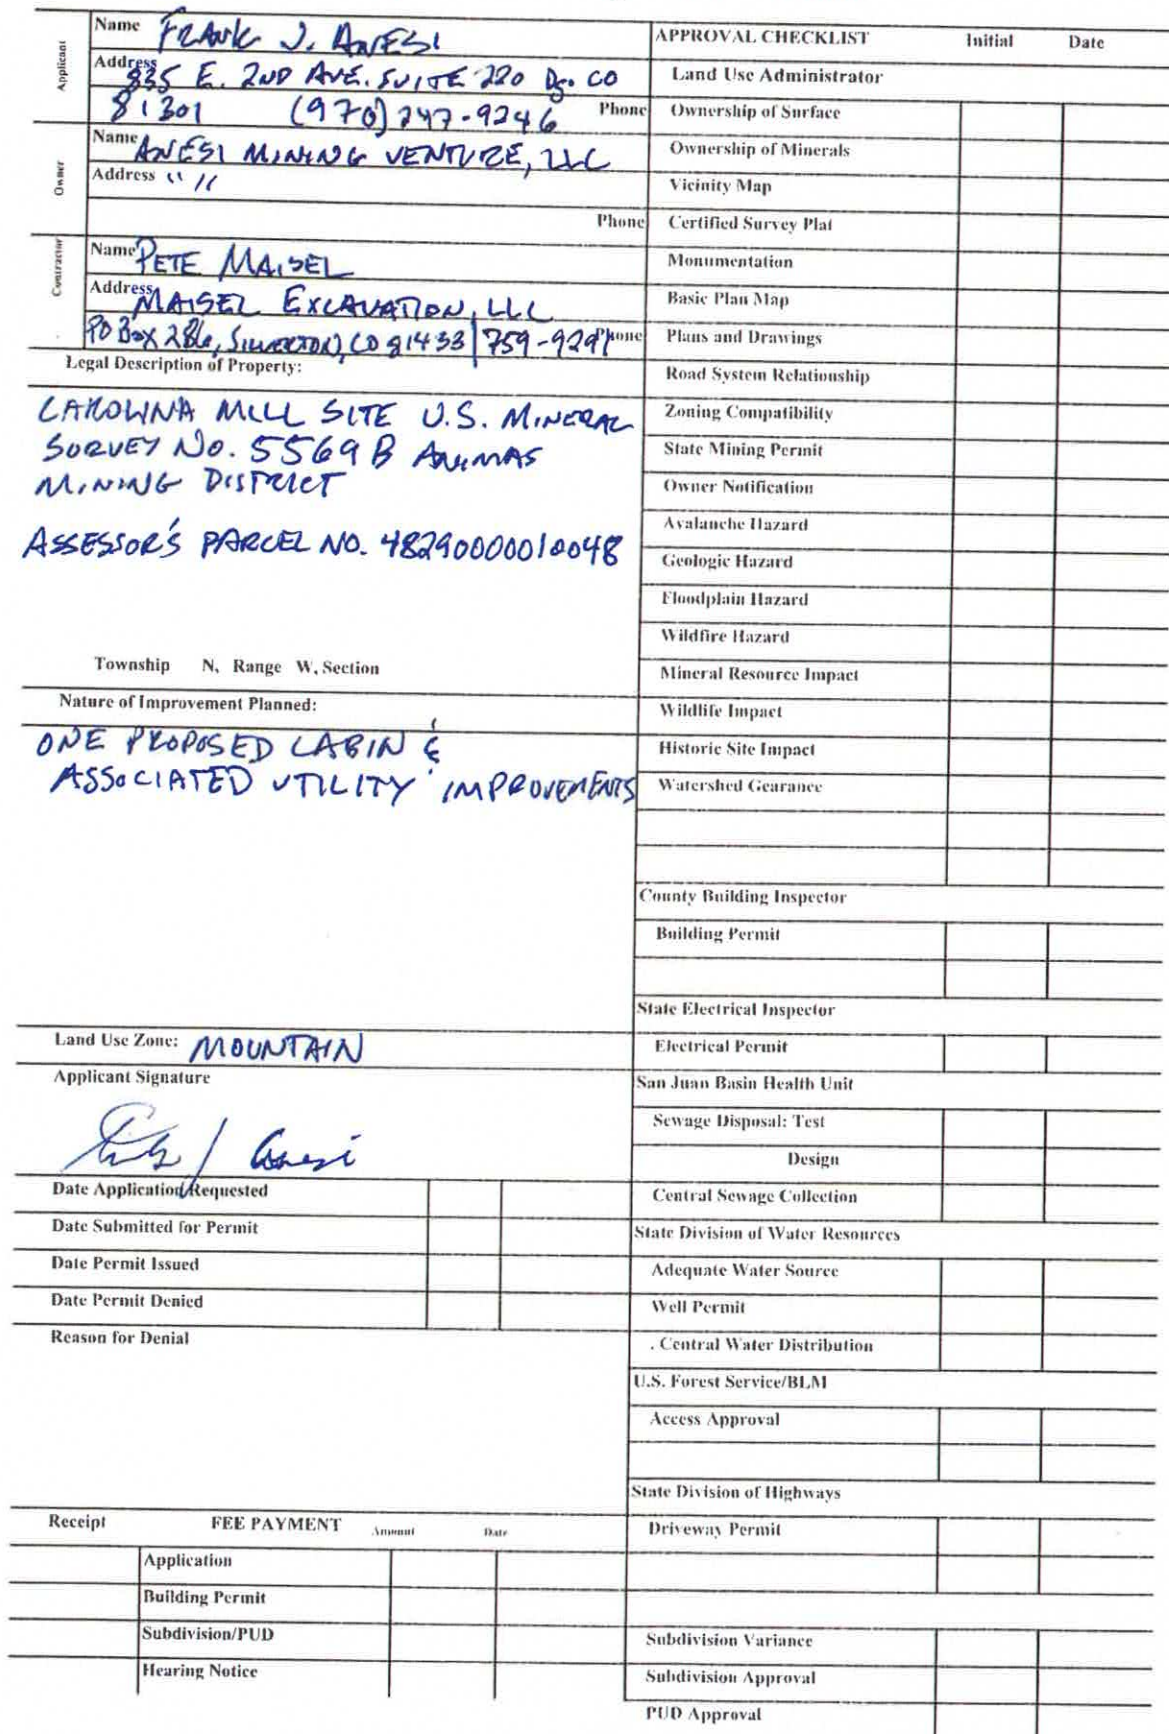 Applicant
Name FRANK J. ANESI
Address 835 E. 2ND AVE. SUITE 220 Dgo CO
81301 (970) 247-9246 Phone
Owner
Name ANESI MINING VENTURE, LLC
Address " "
Phone
Contractor
Name PETE MAISEL
Address MAISEL EXCAVATION, LLC
PO BOX 286, SILVERTON, CO 81433 759-9291 Phone
Legal Description of Property:
CAROLINA MILL SITE U.S. MINERAL
SURVEY No. 5569 B ANIMAS
MINING DISTRICT
ASSESSOR'S PARCEL NO. 48290000010048
Township N, Range W, Section
Nature of Improvement Planned:
ONE PROPOSED CABIN &
ASSOCIATED UTILITY IMPROVEMENTS
Land Use Zone: MOUNTAIN
Applicant Signature
Anesi
Date Application Requested
Date Submitted for Permit
Date Permit Issued
Date Permit Denied
Reason for Denial
Receipt FEE PAYMENT Amount Date
Application
Building Permit
Subdivision/PUD
Hearing Notice
APPROVAL CHECKLIST Initial Date
Land Use Administrator
Ownership of Surface
Ownership of Minerals
Vicinity Map
Certified Survey Plat
Monumentation
Basic Plan Map
Plans and Drawings
Road System Relationship
Zoning Compatibility
State Mining Permit
Owner Notification
Avalanche Hazard
Geologic Hazard
Floodplain Hazard
Wildfire Hazard
Mineral Resource Impact
Wildlife Impact
Historic Site Impact
Watershed Gearance
County Building Inspector
Building Permit
State Electrical Inspector
Electrical Permit
San Juan Basin Health Unit
Sewage Disposal: Test
Design
Central Sewage Collection
State Division of Water Resources
Adequate Water Source
Well Permit
. Central Water Distribution
U.S. Forest Service/BLM
Access Approval
State Division of Highways
Driveway Permit
Subdivision Variance
Subdivision Approval
PUD Approval